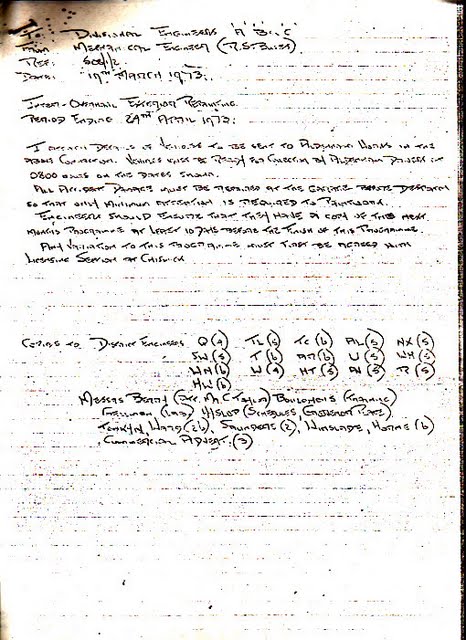 To: Divisional Engineers 'A' 'B' 'C'
From Mechanical Engineer (R.S. Bines)
Ref:
Date: 19th March 1973.
Inter-Overhaul Exterior Repainting
Period Ending 29th April 1973.
I attach details of vehicles to be sent to Aldenham Works in the
above connection. Vehicles must be ready for collection by Aldenham drivers at
0800 hours on the dates shown.
All accident damage must be repaired at the garage before despatch
so that only minimum attention is required to paintwork.
Engineers should ensure that they have a copy of the next
months programme at least 10 days before the finish of this programme.
Any variation to this programme must first be agreed with
Licensing Section at Chiswick
Copies to District Engineers Q (4) TL (5) TC (6) AL (5) NX (5)
SW (5) T (6) (6) U (5) WH (5)
WN (6) W (4) HT (5) AV (5) R (5)
HW (6)
Messrs Berry (Att. Mr C Taylor)
(Grosvenor Place)
Ward (26), Saunders (2), Winslade, Horne (6)
Commercial Advert. (3)